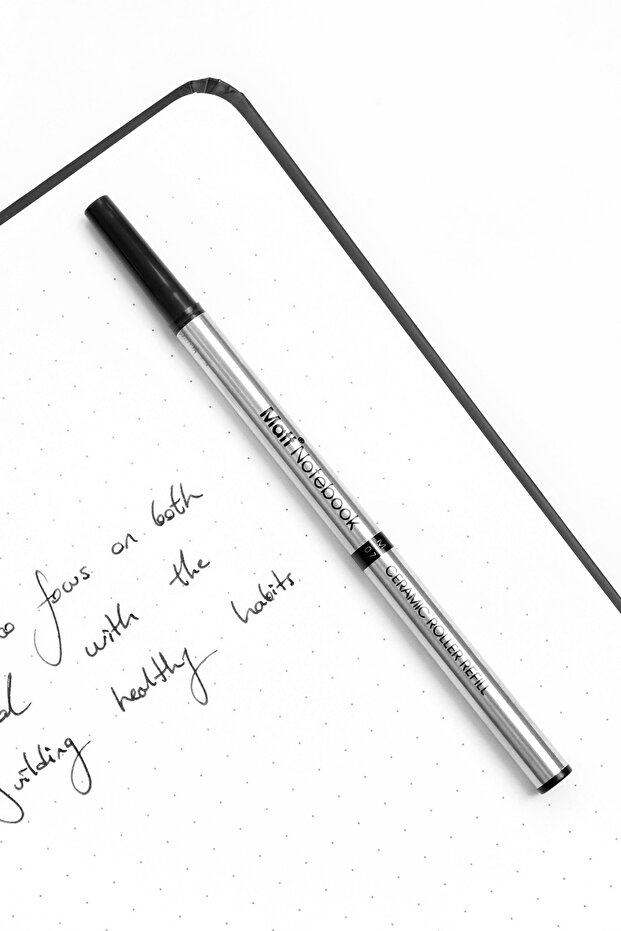 Matt Notebook
M
0.7
CERAMIC ROLLER REFILL
focus on both
with the
building healthy habits